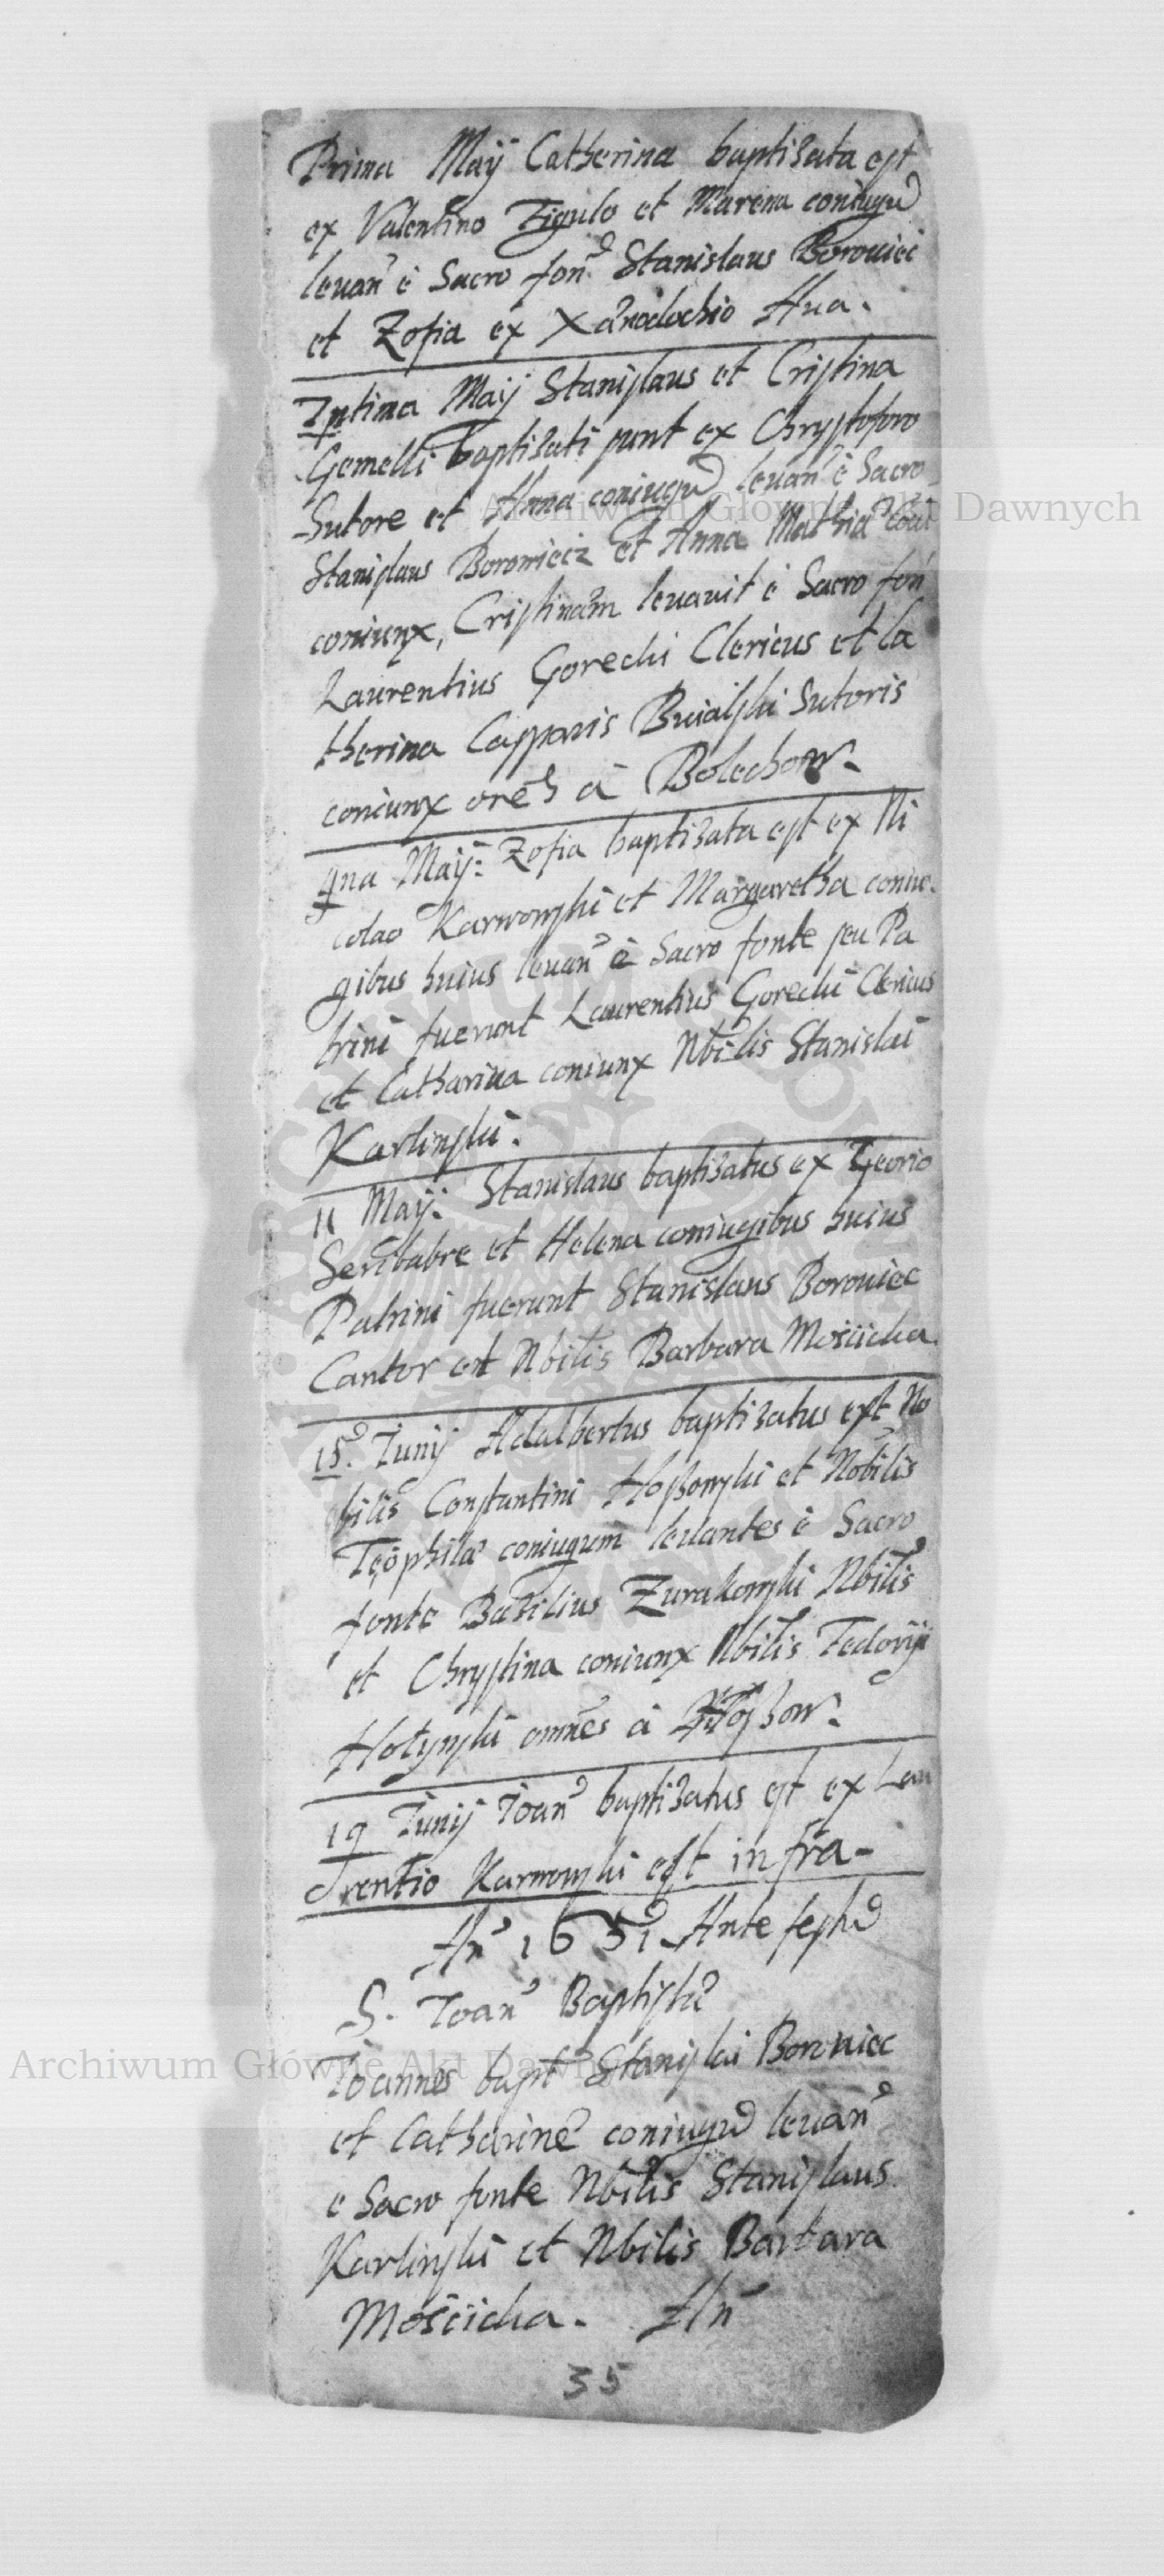 Prima Maÿ Catherina baptisata est
ex Valentino Figulo et Marena coniugũ
leuan̄ è Sacro fon. Stanislaus Borowiec
et Zofia ex Xænodochio Hua.
7ptima Maÿ Stanislaus et Cristina
Gemelli baptisati sunt ex Chrystoforo
Sutore et Anna coniugũ leuan̄ è Sacro
Stanislaus Borowiecz et Anna Mathiæ
coniunx, Cristinam leuauit è Sacro fon̄
Laurentius Gorecki Clericus et Ca
therina Casparis Buialski Sutoris
coniunx oẽs à Bolechow.
9na Maÿ. Zofia baptisata est ex Ni
colao Karwowski et Margaretha coniu-
gibus huius leuan̄ è Sacro fonte seu Pa
trini fuerunt Laurentius Gorecki Clericus
et Catharina coniunx Nbilis Stanislai
Karlinski.
11 Maÿ. Stanislaus baptisatus ex Georio
et Helena coniugibus huius
Patrini fuerunt Stanislaus Borowiec
Cantor et Nbilis Barbara Moscicka.
15. Iunÿ Adalbertus baptisatus est No
bilis Constantini Hoszowski et Nobilis
Teophilæ coniugum leuantes è Sacro
fonte Basilius Zurakowski Nbilis
et Chrystina coniunx Nbilis Fedorÿ
Hotynski omnes à Hoszow.
19 Iunÿ Ioan̄ baptisatus est ex Lau
rentio Karwowski est infra-
An̄ 1651. Ante festũ
S. Ioan̄ Baptistæ
Ioannes bapt Stanislai Borowiec
et Catharinæ coniugũ leuan̄
e Sacro fonte Nbilis Stanislaus
Karlinski et Nbilis Barbara
Moscicka. An̄
35
Archiwum Główne Akt Dawnych
Archiwum Główne Akt Dawnych